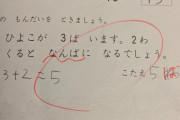 の もんだいを ときましょう。
ひよこが 3ば います。2わ
くると なんばに なるでしょう。
3+2=5
こたえ 5